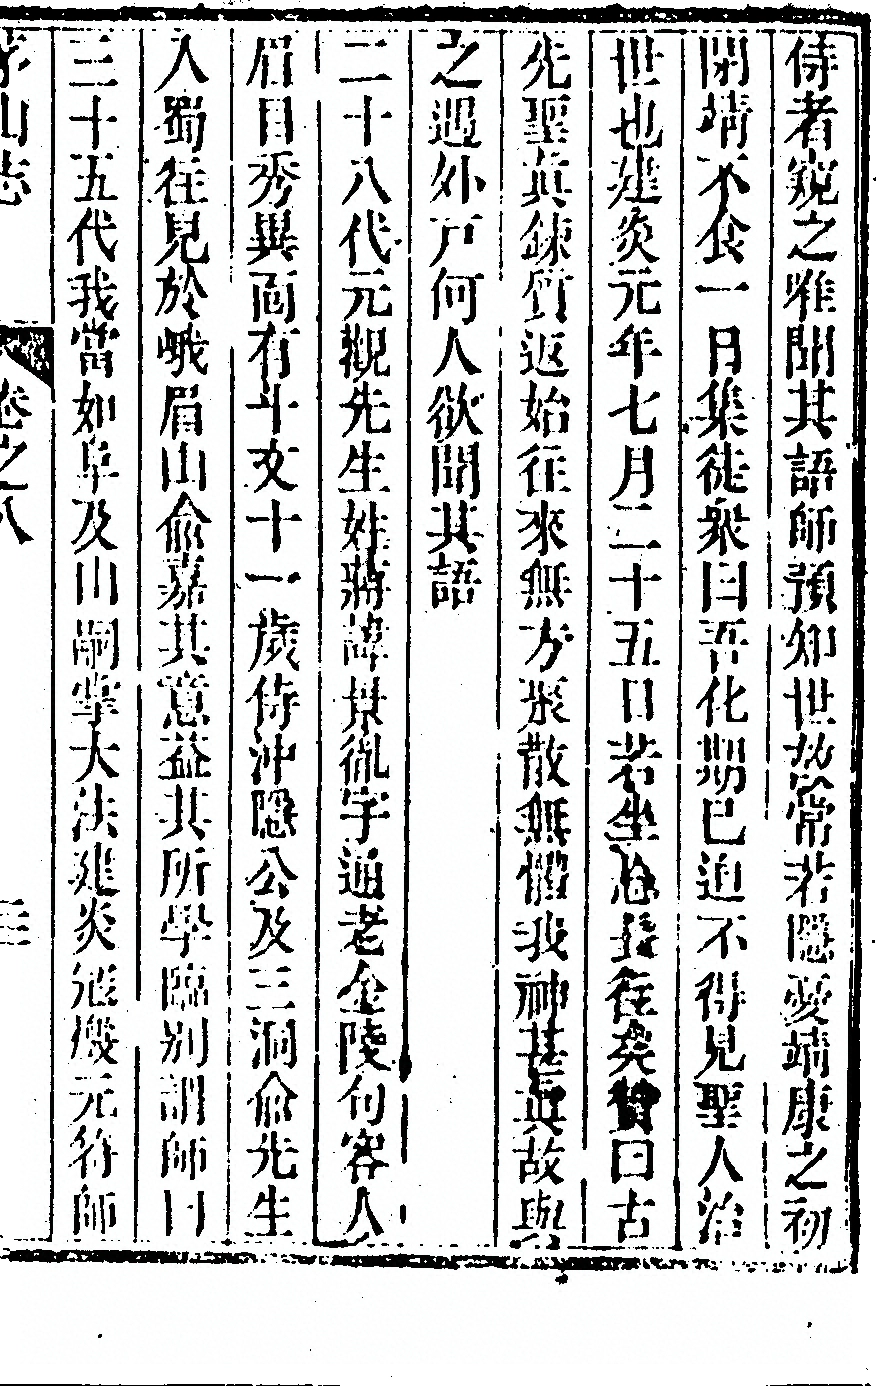 侍者窺之唯聞其語師預知世故常若隱憂靖康之初
閉靖不食一日集徒衆曰吾化期巳迫不得見聖人治
世也建炎元年七月二十五日若坐忘長往矣贊曰古
先聖真鍊質返始往來無方聚散無體我神甚真故與
之遇外戸何人欲聞其語
二十八代元觀先生姓蔣諱景徹字通老金陵句容人
眉目秀異面有斗文十一歲侍沖隱公及三洞俞先生
入蜀往見於峨眉山俞嘉其意益其所學臨別謂師曰
三十五代我當如阜及山嗣掌大法建炎褫燬元符師
茅山志 卷之八 三